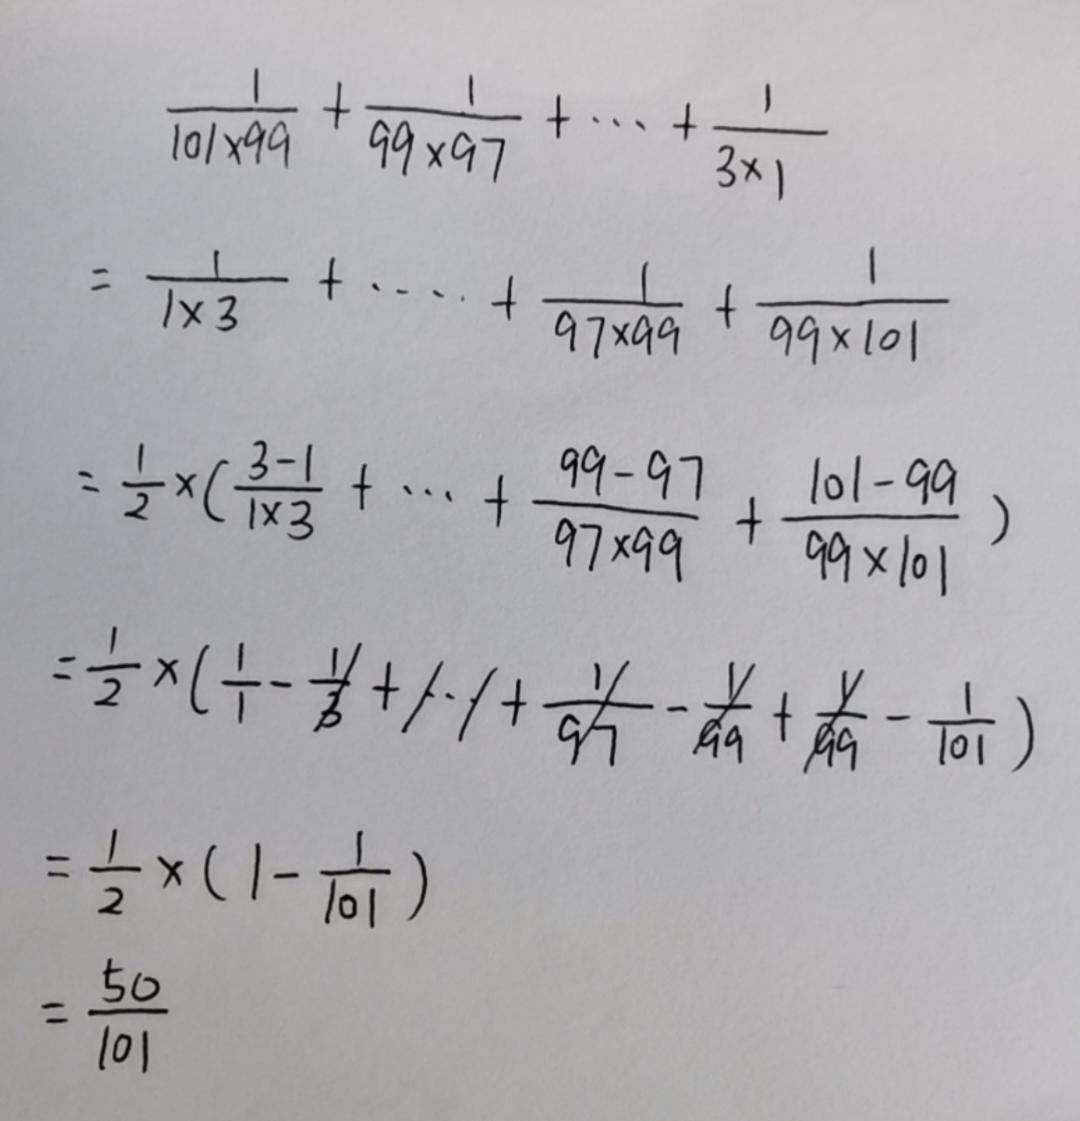 1/(101×99) + 1/(99×97) + ··· + 1/(3×1)
= 1/(1×3) + ····· + 1/(97×99) + 1/(99×101)
= 1/2 × ( (3-1)/(1×3) + ··· + (99-97)/(97×99) + (101-99)/(99×101) )
= 1/2 × ( 1/1 - 1/3 + ··· + 1/97 - 1/99 + 1/99 - 1/101 )
= 1/2 × ( 1 - 1/101 )
= 50/101